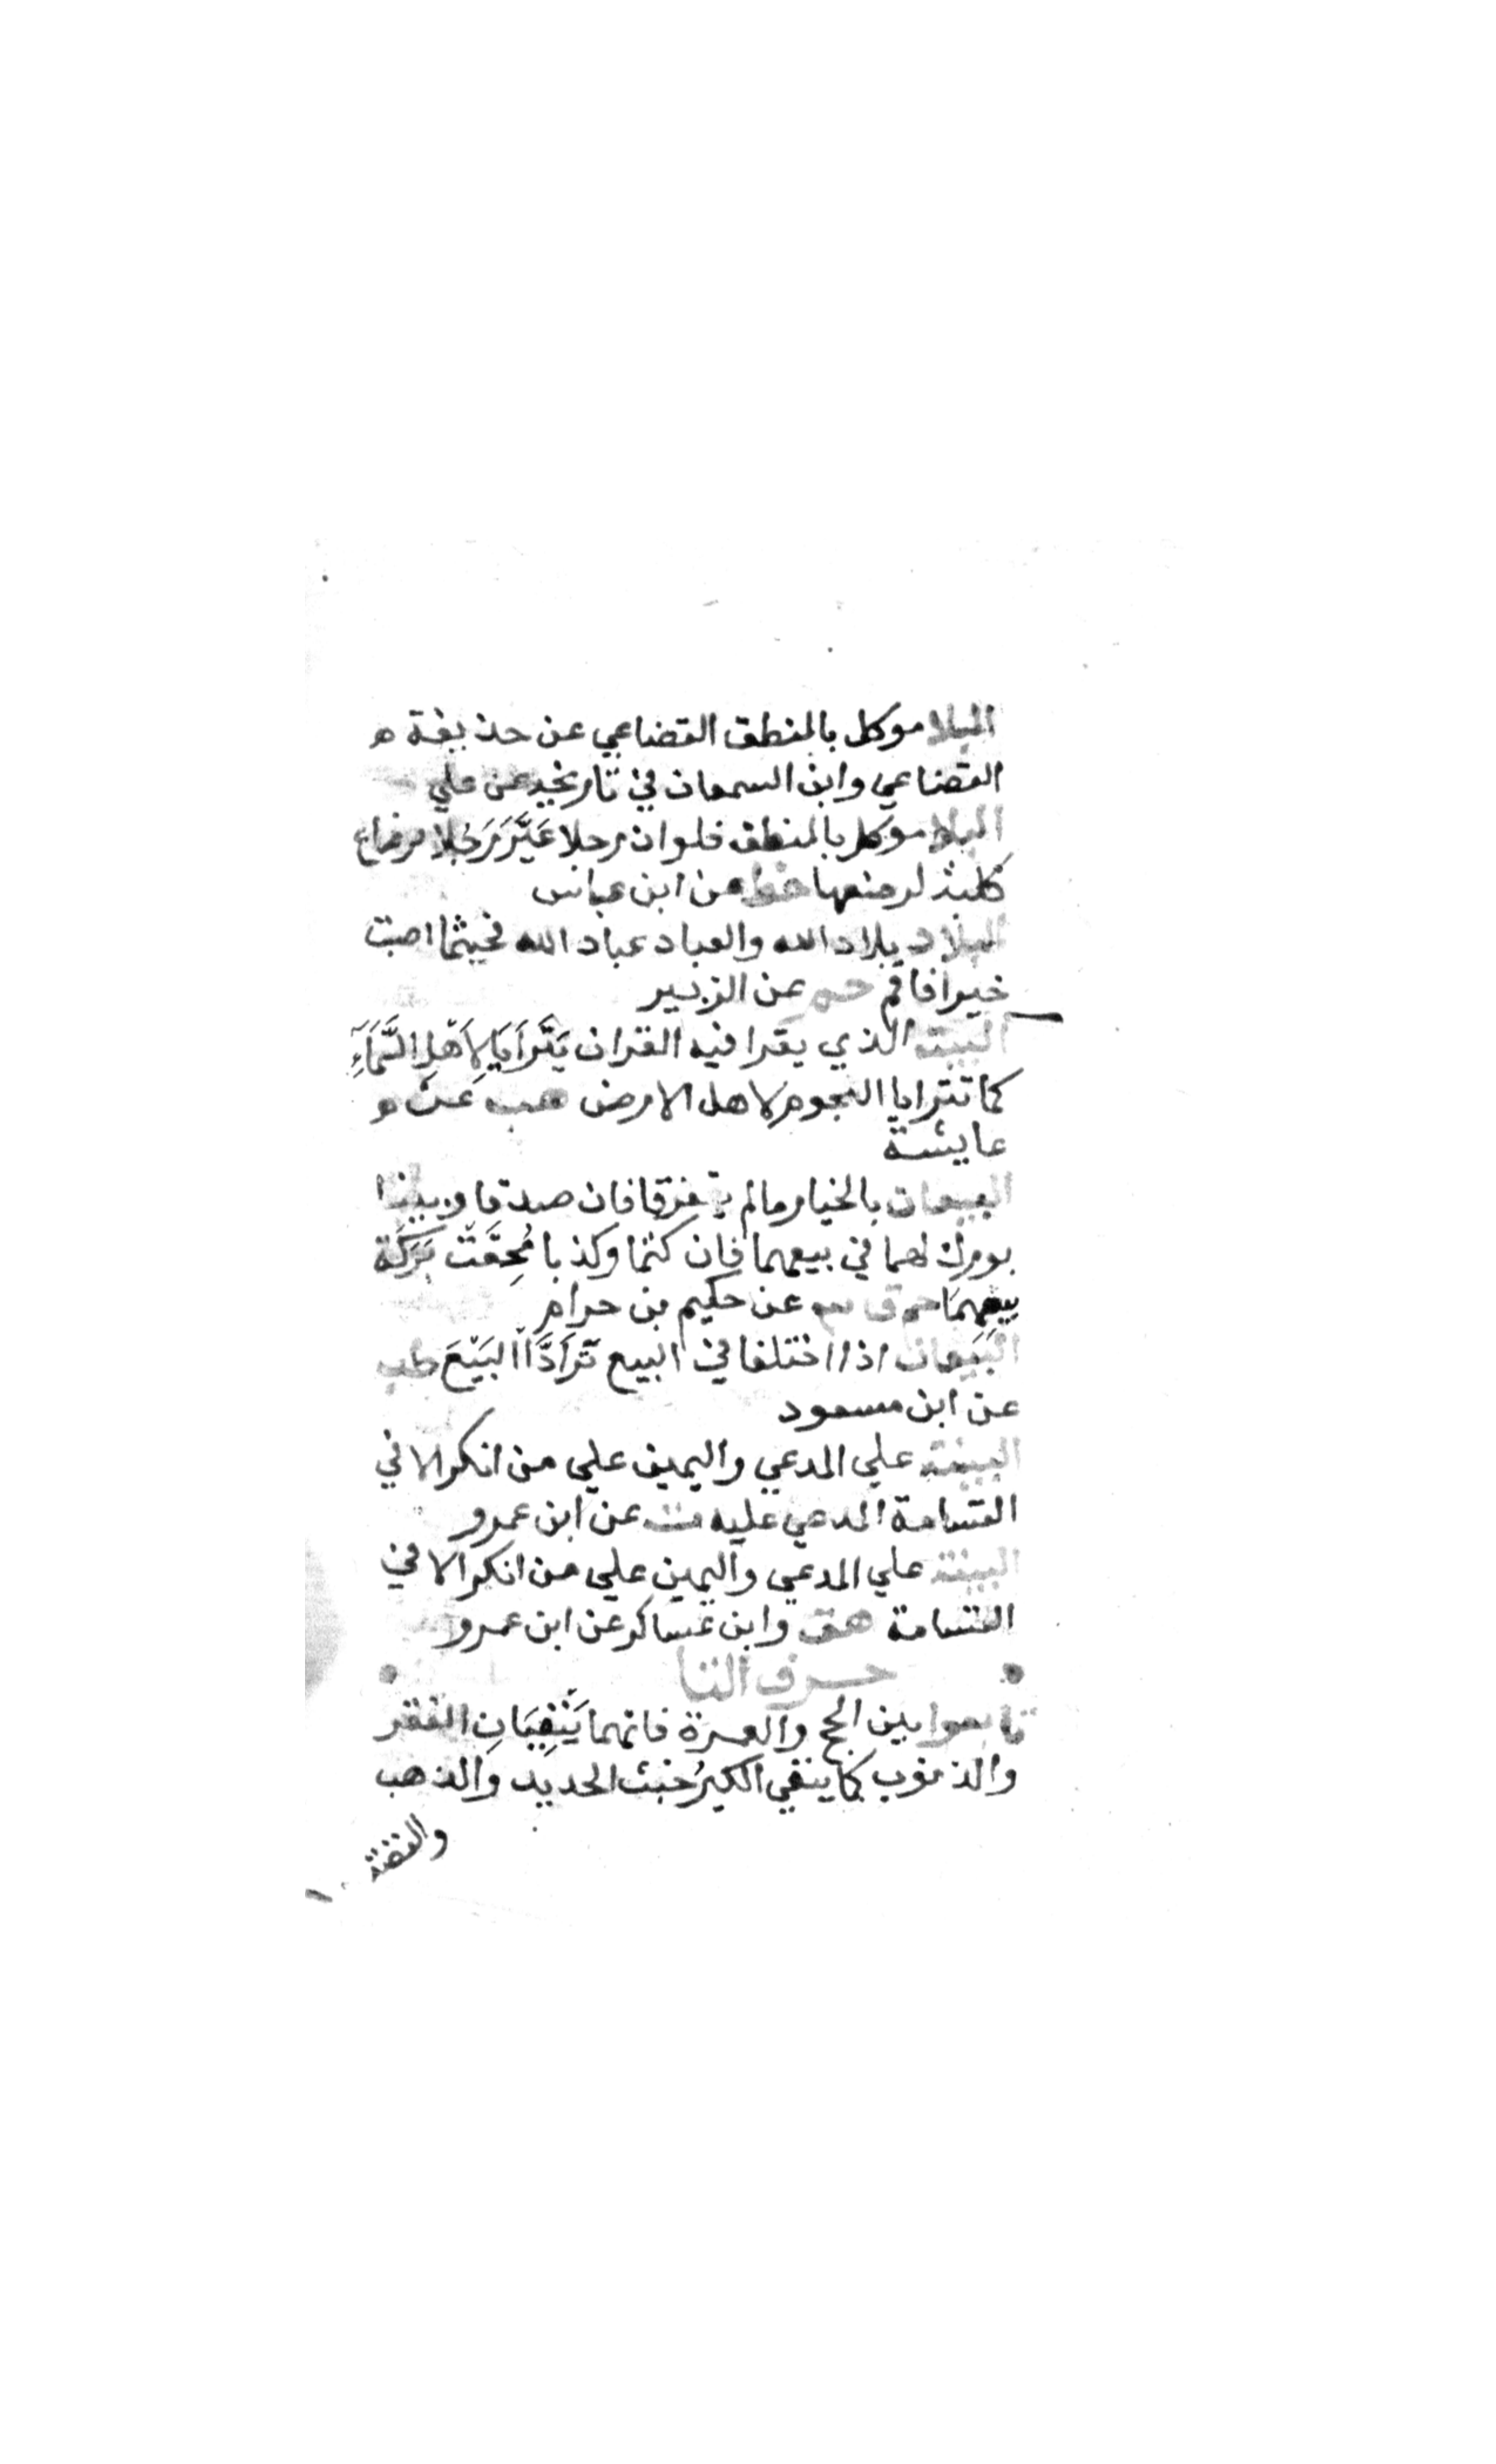 البلا موكل بالمنطق القضاعي عن حذيفة ه
القضاعي وابن السمعان في تاريخه عن علي
البلا موكل بالمنطق فلو ان رجلا عَيَّرَ رَجُلا برضاع
كلبة لرضعها خط عن ابن عباس
البلاد بلاد الله والعباد عباد الله فحيثما اصبت
خيرا فاقم حم عن الزبير
البيت الذي يقرا فيه القران يَتَرَأَيَا لِأَهْلِ السَّمَآءِ
كما تترايا النجوم لاهل الارض هب عَن ه
عايشة
البيعان بالخيار مالم يتفرقا فان صدقا وبينا
بورك لهما في بيعهما فان كتما وكذبا مُحِقَتْ بَرَكَة
بيعهما حم ق عن حكيم بن حزام
البَيِّعان اذا اختلفا في البيع تَرَادَّا البَيْعَ طب
عن ابن مسعود
البينة علي المدعي واليمين علي من انكر الا في
القسامة المدعي عليه ت عن ابن عمرو
البينة علي المدعي واليمين علي من انكر الا في
القسامة هق وابن عساكر عن ابن عمرو
حرف التا
تابعوا بين الحج والعمرة فانهما يَنْفِيَانِ الفقر
والذنوب كما ينفي الكيرُ خبث الحديد والذهب
والفضة